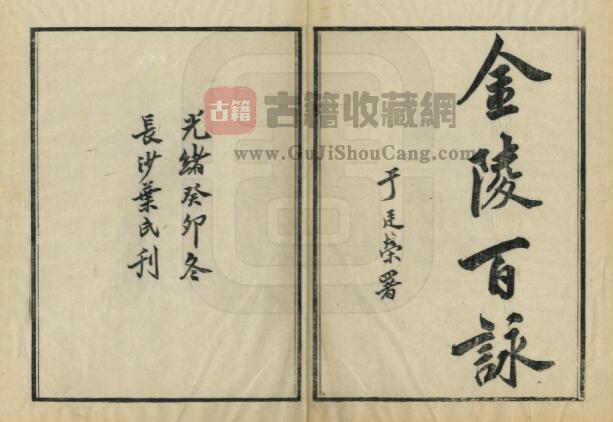 金陵百詠
于廷榮署
光緒癸卯冬
長沙葉氏刊
古籍
古籍收藏網
www.GuJiShouCang.com